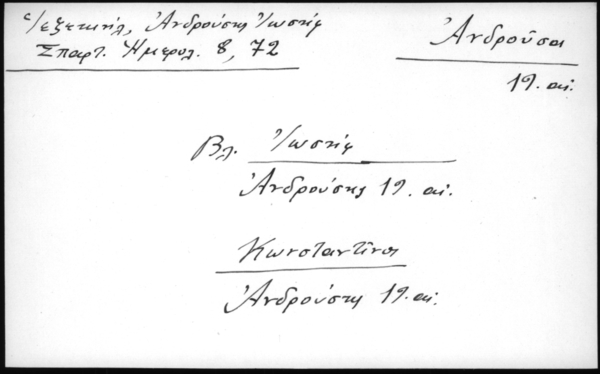 Ἀνδρούσης Ἰωσὴφ
Σπαρτ. Ἡμερολ. 8, 72
Ἀνδροῦσα
19. αἰ.
Βλ. Ἰωσὴφ
Ἀνδρούσης 19. αἰ.
Κωνσταντῖνος
Ἀνδρούσης 19. αἰ.